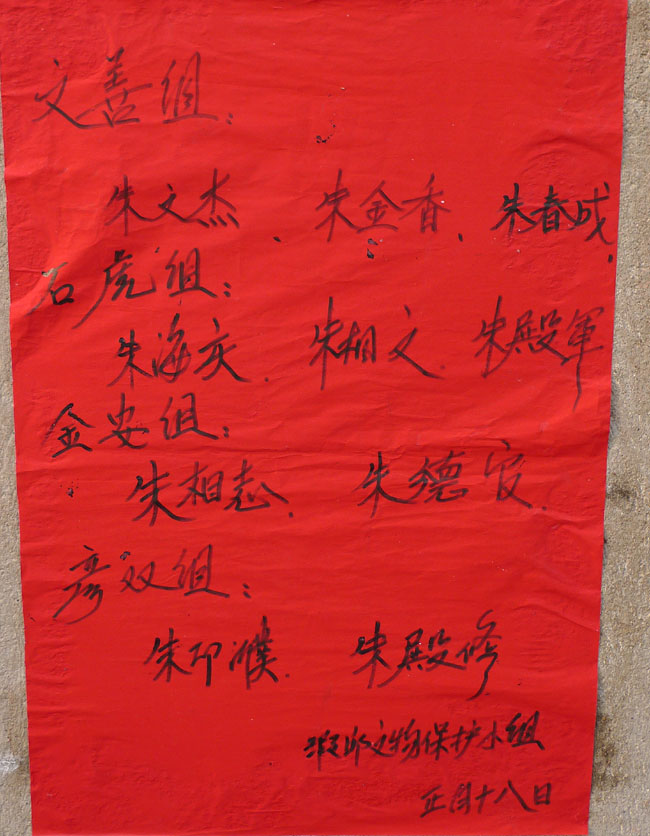 文善组：
朱文杰、朱金香、朱春成、
石虎组：
朱海庆、朱相文、朱殿軍
金安组：
朱相志、朱德官、
彦双组：
朱印濮、朱殿修
文物保护小组
正月十八日